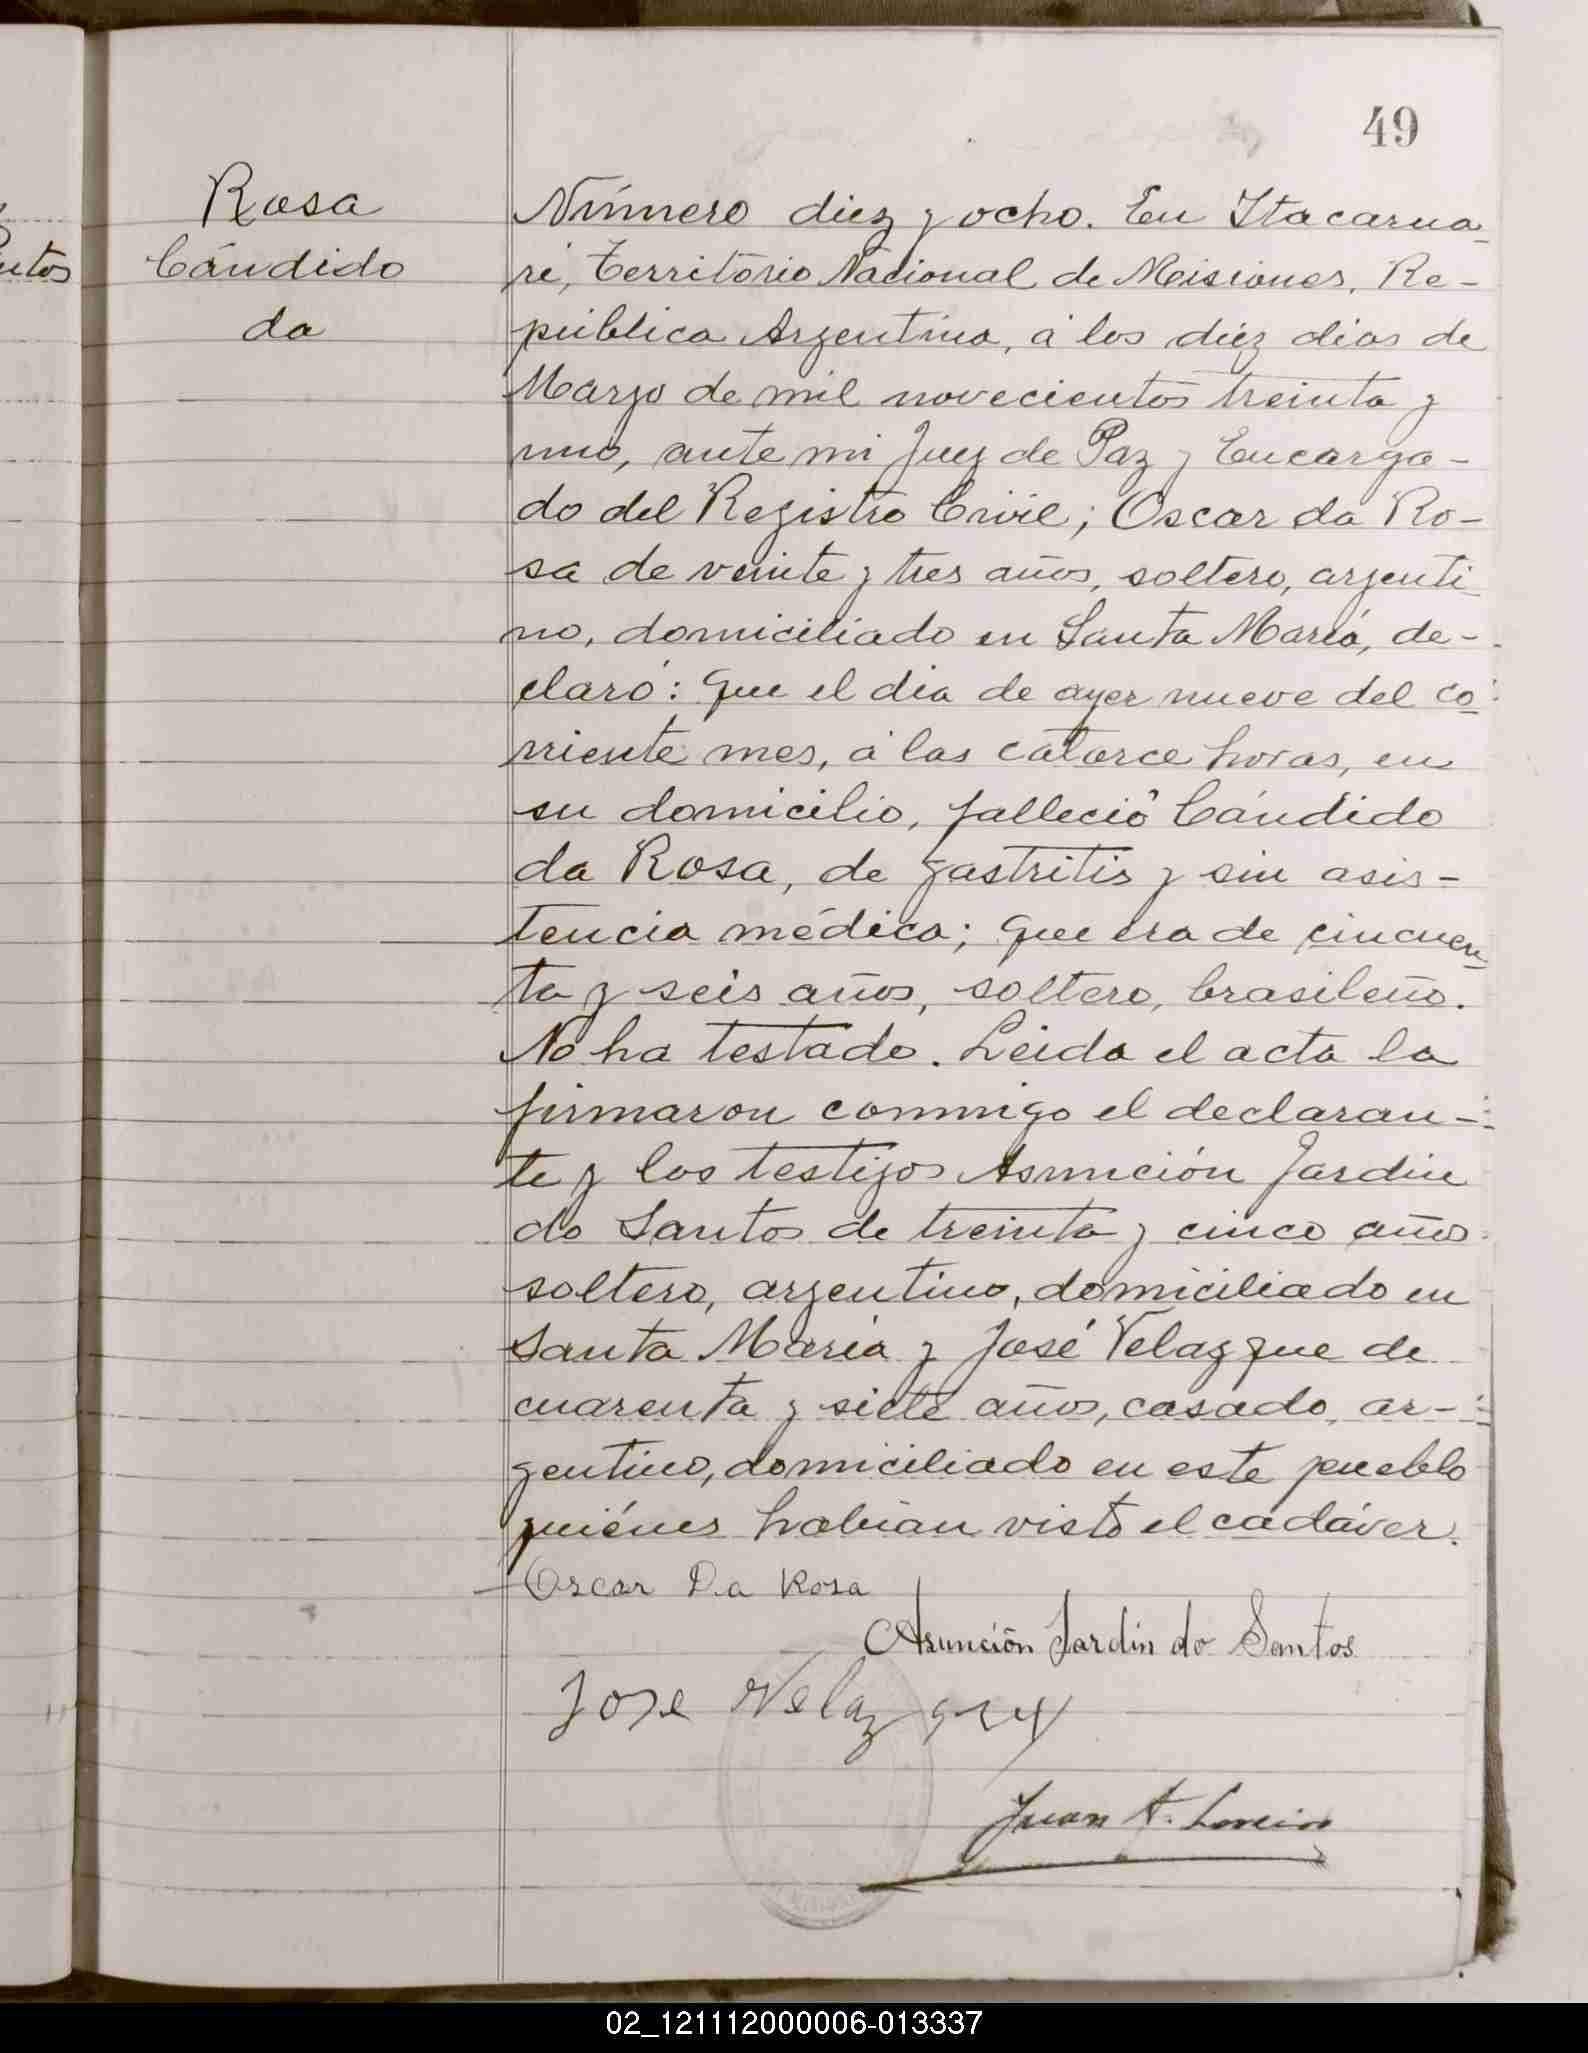 49
Rosa
Cándido
da
Número diez y ocho. En Itacarua-
ré, Territorio Nacional de Misiones, Re-
pública Argentina, á los diez dias de
Marzo de mil novecientos treinta y
uno, ante mi Juez de Paz y Encarga-
do del Registro Civil; Oscar da Ro-
sa de veinte y tres años, soltero, argenti-
no, domiciliado en Santa María, de-
claró: Que el dia de ayer nueve del co-
rriente mes, á las catorce horas, en
su domicilio, falleció Cándido
da Rosa, de gastritis y sin asis-
tencia médica; Que era de cincuen-
ta y seis años, soltero, brasileño.
No ha testado. Leida el acta la
firmaron conmigo el declaran-
te y los testigos Asunción Jardin
do Santos de treinta y cinco años
soltero, argentino, domiciliado en
Santa María y José Velazque de
cuarenta y siete años, casado, ar-
gentino, domiciliado en este pueblo
quiénes habian visto el cadáver.
Oscar Da Rosa
Asunción Jardin do Santos
Jose Velaz
Juan A.
02_121112000006-013337